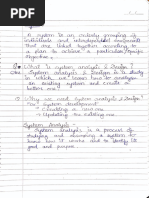 A system is an orderly grouping of
individuals and interdependent components
that are linked together according to
a plan to achieve a particular/specific
objective.
What is system analysis & Design?
System analysis & Design is a study
in which we learn how to analyze
an existing system and create a
better one.
Why we need system analysis & Design
System development
Creating an existing
Updating the existing
System Analysis -
System Analysis is a process of
studying and observing a system to
know how it works and to identify
its goal and purpose.